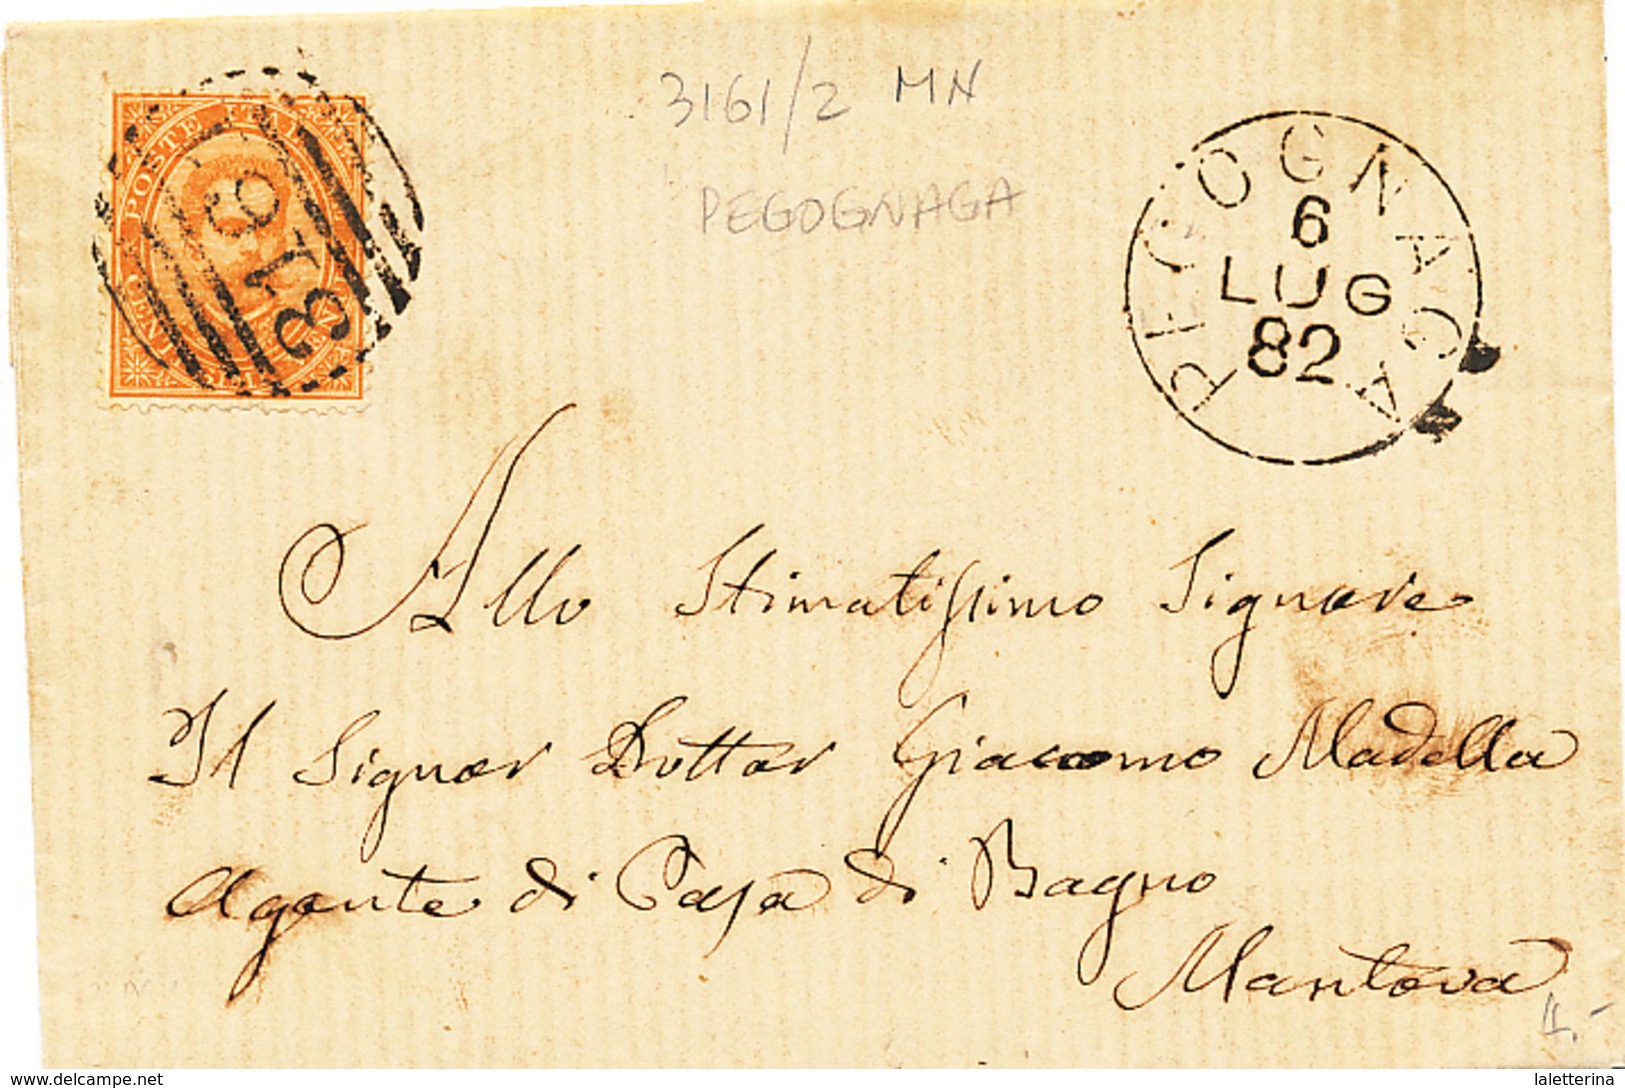 3161/2 MN
PEGOGNAGA
POSTE ITAL
316
PEGOGNAGA
6
LUG
82
Allo Stimatissimo Signore
Il Signor Dottor Giacomo Madella
Agente di Casa di Bagno
Mantova
delcampe.net
laletterina